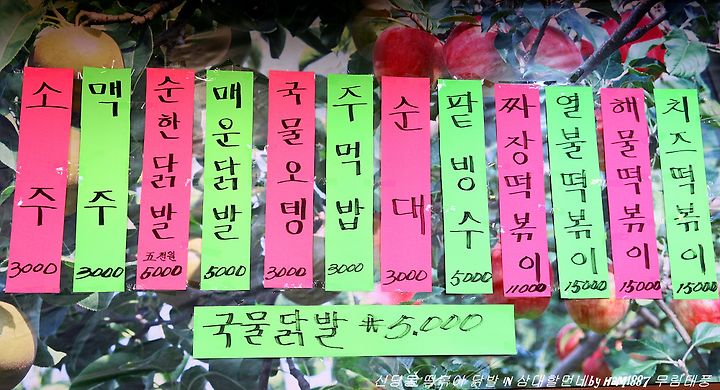 소주 3000
맥주 3000
순한닭발 五천원 5000
매운닭발 5000
국물오뎅 3000
주먹밥 3000
순대 3000
팥빙수 5000
짜장떡볶이 11000
열불떡볶이 15000
해물떡볶이 15000
치즈떡볶이 15000
국물닭발 ₩5.000
신당동 떡볶이 닭발 IN 삼대할먼네by HDM1887 무림태풍